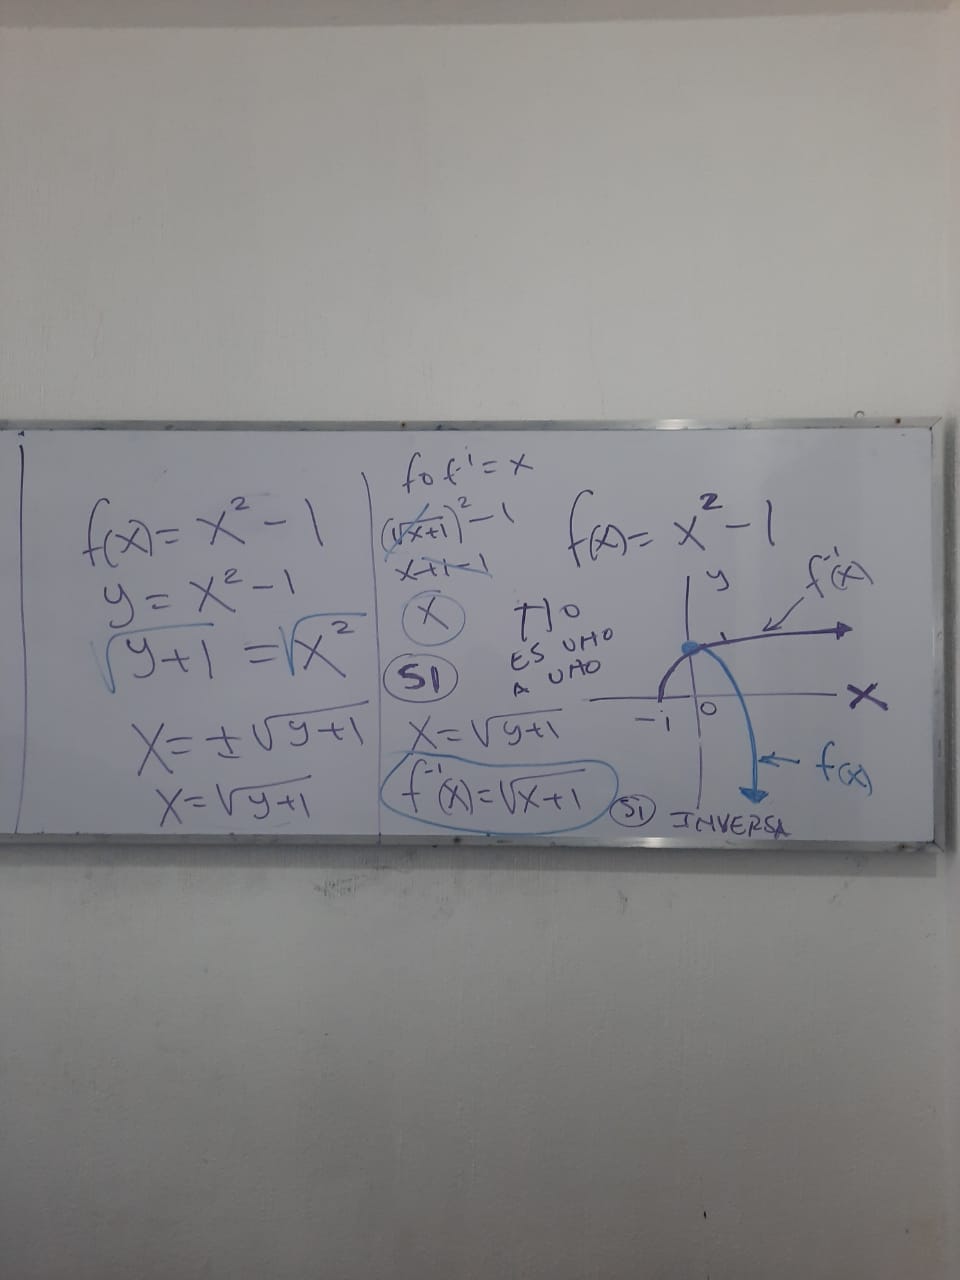 f(x) = x² - 1
y = x² - 1
√y+1 = √x²
x = ± √y+1
x = √y+1
f o f⁻¹ = x
(√x+1)² - 1
x+1-1
x
SI
ES UNO
A UNO
x = √y+1
f⁻¹(x) = √x+1
f(x) = x² - 1
y
f⁻¹(x)
x
-1
0
f(x)
SI INVERSA